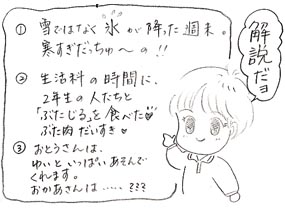 ① 雪ではなく 氷 が降った週末。
寒すぎだっちゅ〜の!!
② 生活科の時間に、
2年生の人たちと
「ぶたじる」を食べた♥
ぶた肉だいすき♥
③ おとうさんは、
ゆいといっぱいあそんで
くれます。
おかあさんは……???
解説だヨ